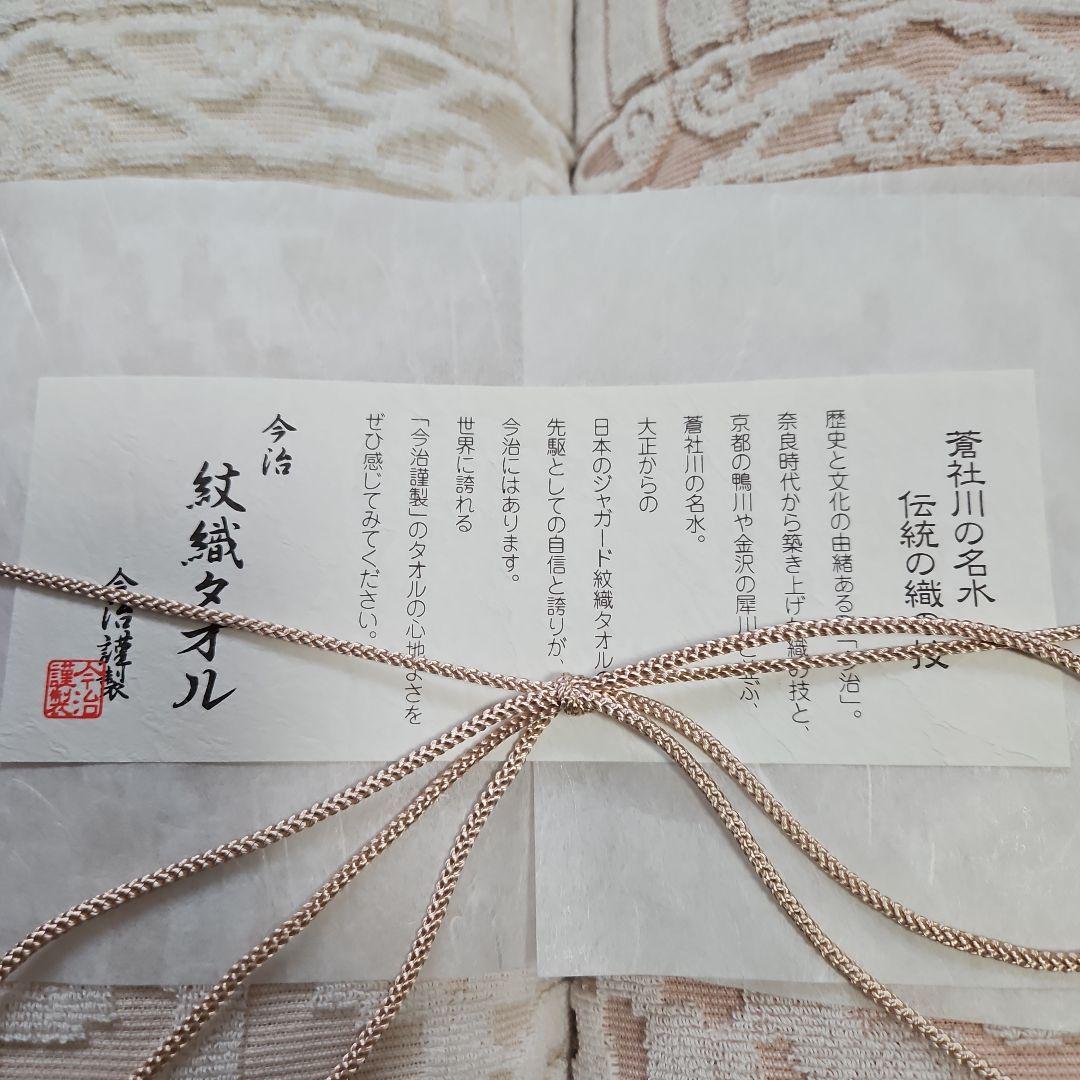 蒼社川の名水
伝統の織の技
歴史と文化の由緒ある「今治」。
奈良時代から築き上げた織の技と、
京都の鴨川や金沢の犀川と並ぶ、
蒼社川の名水。
大正からの
日本のジャガード紋織タオル
先駆としての自信と誇りが、
今治にはあります。
世界に誇れる
「今治謹製」のタオルの心地よさを
ぜひ感じてみてください。
今治
紋織タオル
今治謹製
今治
謹製